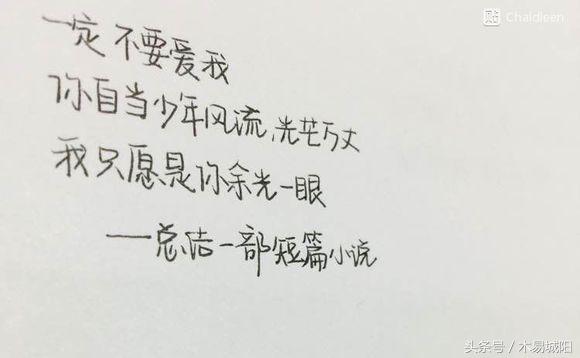 贴 Chaldleen
一定不要爱我
你自当少年风流,光芒万丈
我只愿是你余光一眼
——总结一部短篇小说
头条号/木易城阳